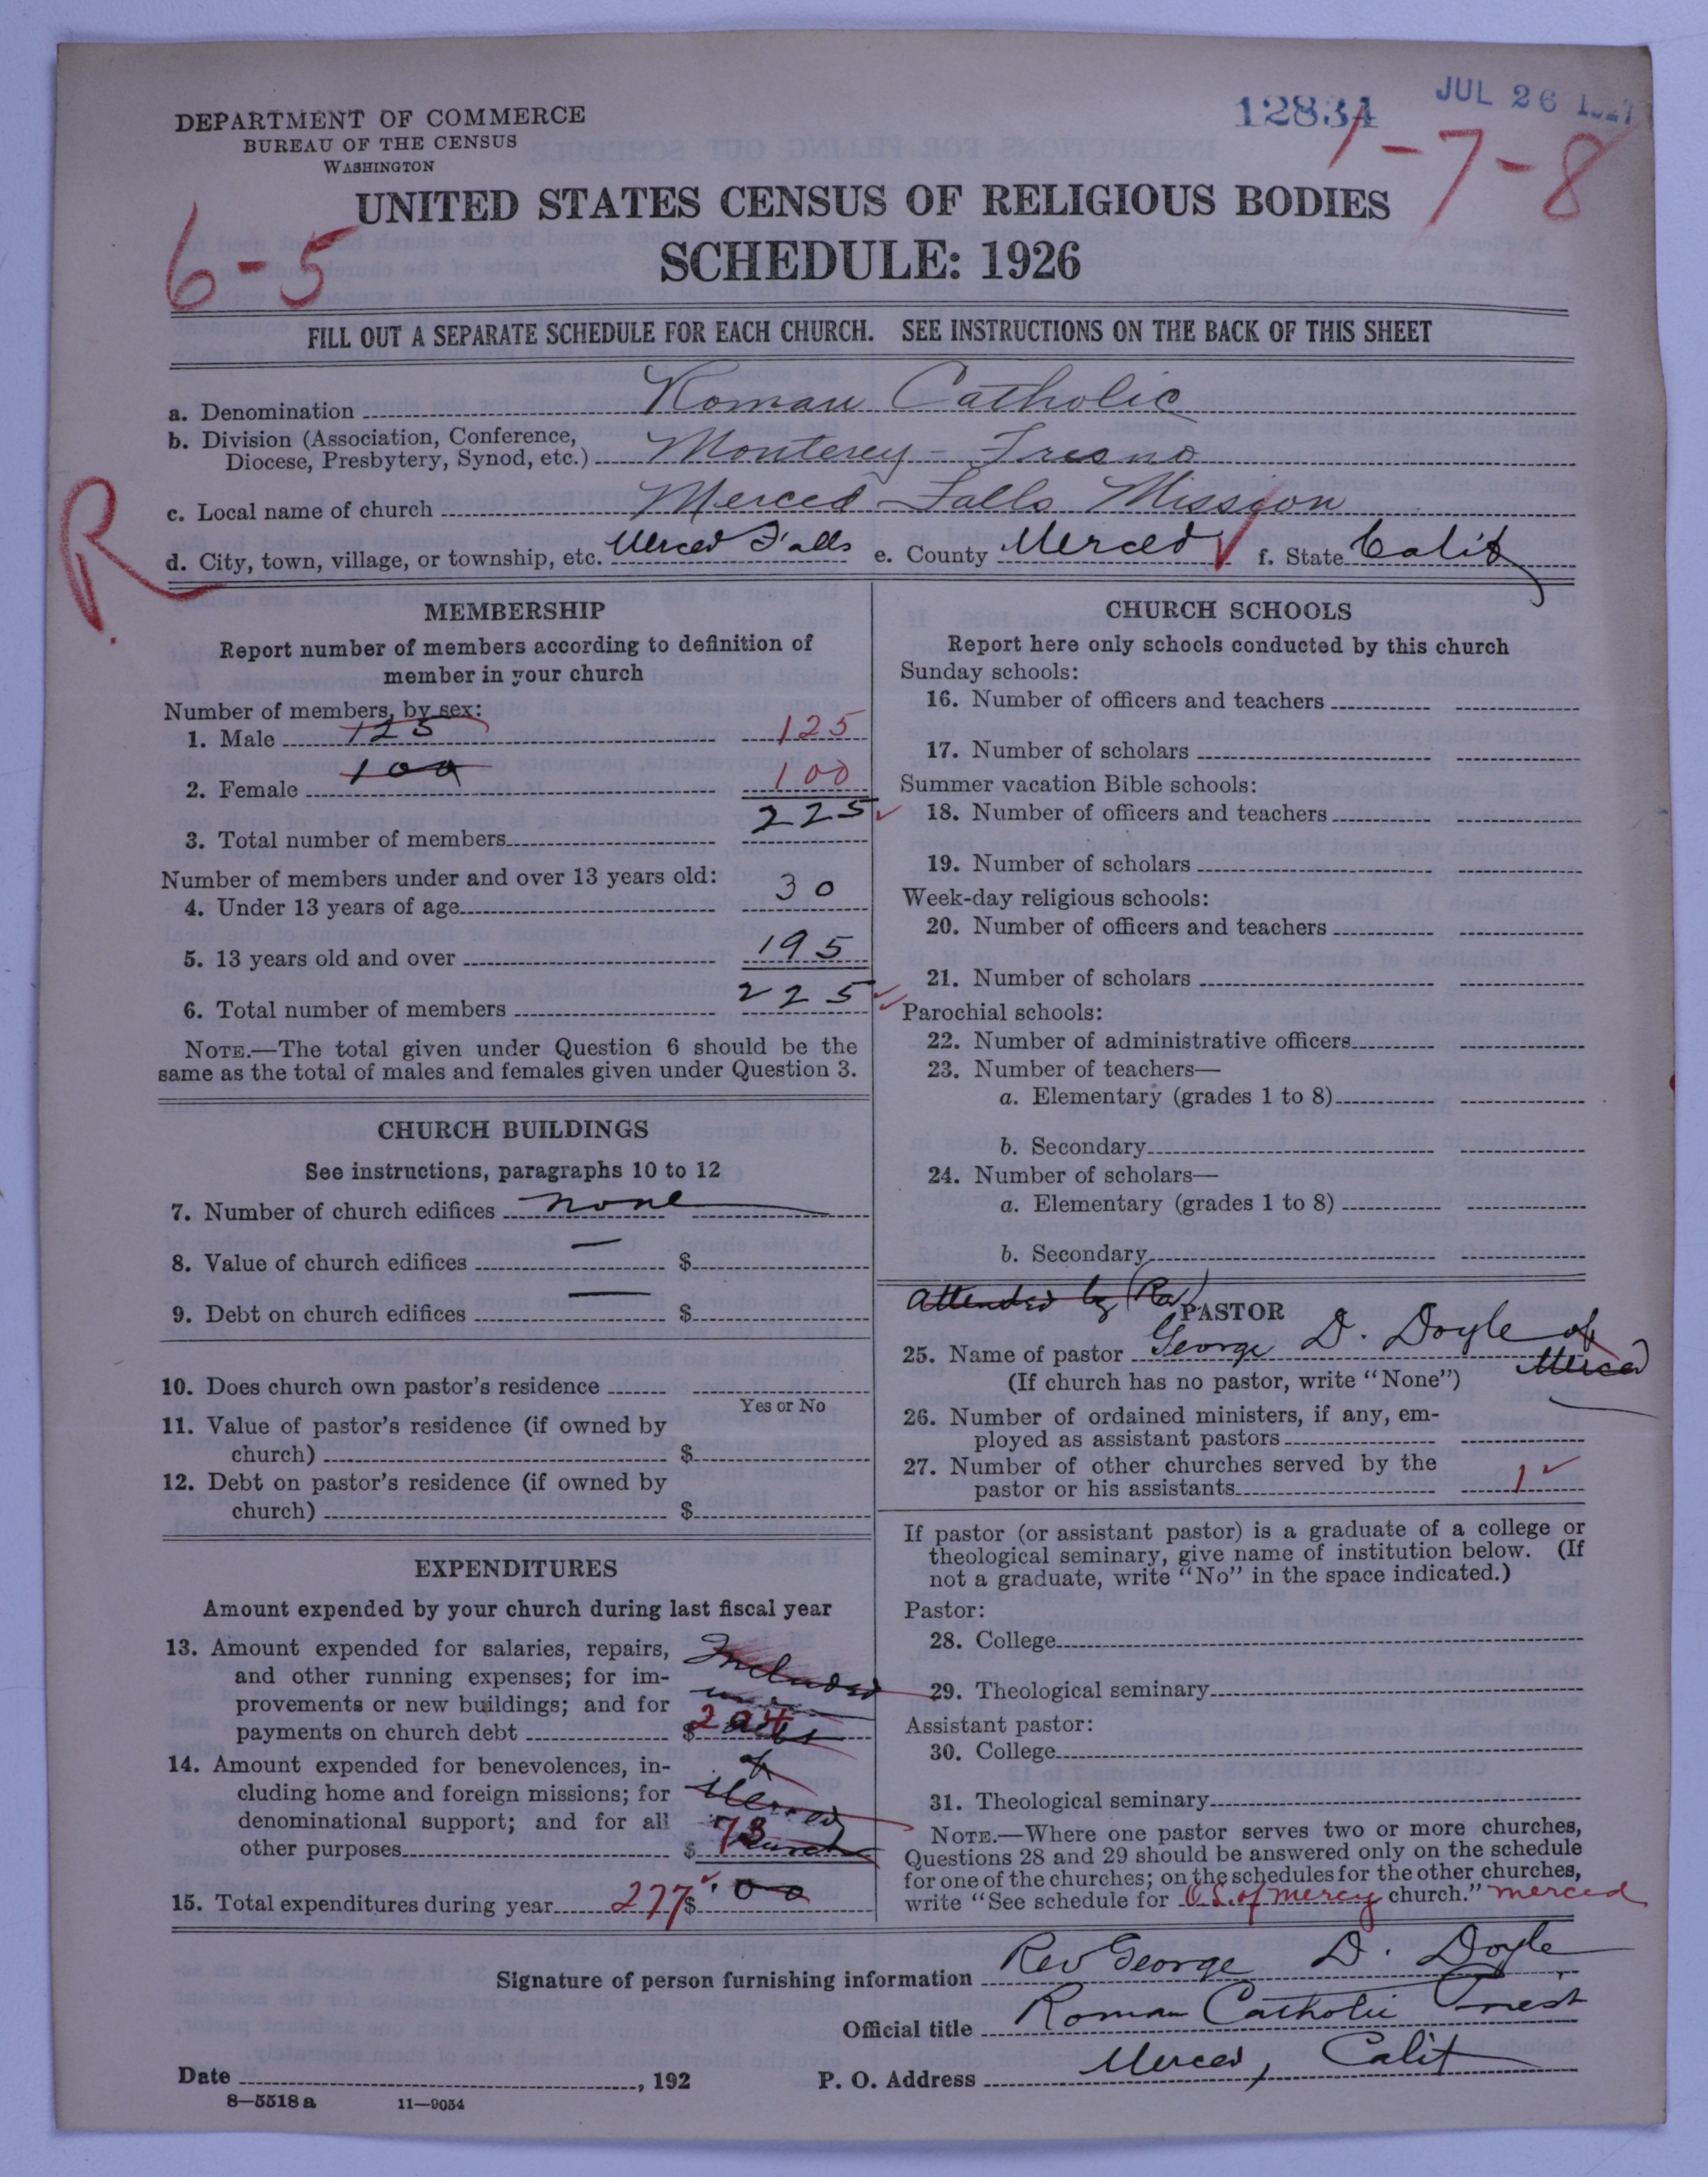 DEPARTMENT OF COMMERCE
BUREAU OF THE CENSUS
WASHINGTON
12834
JUL 26 1927
1-7-8
UNITED STATES CENSUS OF RELIGIOUS BODIES
SCHEDULE: 1926
6-5
FILL OUT A SEPARATE SCHEDULE FOR EACH CHURCH. SEE INSTRUCTIONS ON THE BACK OF THIS SHEET
a. Denomination Roman Catholic
b. Division (Association, Conference,
Diocese, Presbytery, Synod, etc.) Monterey - Fresno
c. Local name of church Merced Falls Mission
R.
d. City, town, village, or township, etc. Merced Falls e. County Merced f. State Calif
MEMBERSHIP
Report number of members according to definition of
member in your church
Number of members, by sex:
1. Male 125 125
2. Female 100 100
3. Total number of members 225
Number of members under and over 13 years old:
4. Under 13 years of age 30
5. 13 years old and over 195
6. Total number of members 225
NOTE.—The total given under Question 6 should be the
same as the total of males and females given under Question 3.
CHURCH BUILDINGS
See instructions, paragraphs 10 to 12
7. Number of church edifices none
8. Value of church edifices — $
9. Debt on church edifices — $
10. Does church own pastor's residence
Yes or No
11. Value of pastor's residence (if owned by
church) $
12. Debt on pastor's residence (if owned by
church) $
EXPENDITURES
Amount expended by your church during last fiscal year
13. Amount expended for salaries, repairs, Included
and other running expenses; for im-
provements or new buildings; and for
payments on church debt $ 204
14. Amount expended for benevolences, in- of
cluding home and foreign missions; for Merced
denominational support; and for all
other purposes $ 73 church
15. Total expenditures during year 277 $ 00
CHURCH SCHOOLS
Report here only schools conducted by this church
Sunday schools:
16. Number of officers and teachers
17. Number of scholars
Summer vacation Bible schools:
18. Number of officers and teachers
19. Number of scholars
Week-day religious schools:
20. Number of officers and teachers
21. Number of scholars
Parochial schools:
22. Number of administrative officers
23. Number of teachers—
a. Elementary (grades 1 to 8)
b. Secondary
24. Number of scholars—
a. Elementary (grades 1 to 8)
b. Secondary
Attended by
PASTOR
25. Name of pastor George D. Doyle of
Merced
(If church has no pastor, write "None")
26. Number of ordained ministers, if any, em-
ployed as assistant pastors
27. Number of other churches served by the
pastor or his assistants 1
If pastor (or assistant pastor) is a graduate of a college or
theological seminary, give name of institution below. (If
not a graduate, write "No" in the space indicated.)
Pastor:
28. College
29. Theological seminary
Assistant pastor:
30. College
31. Theological seminary
NOTE.—Where one pastor serves two or more churches,
Questions 28 and 29 should be answered only on the schedule
for one of the churches; on the schedules for the other churches,
write "See schedule for O. L. of mercy church." merced
Signature of person furnishing information Rev George D. Doyle
Official title Roman Catholic Priest
Date , 192 P. O. Address Merced, Calif
8—5518 a 11—9054